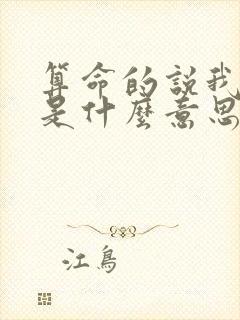 算命的說我
是什麼意思
江鳥